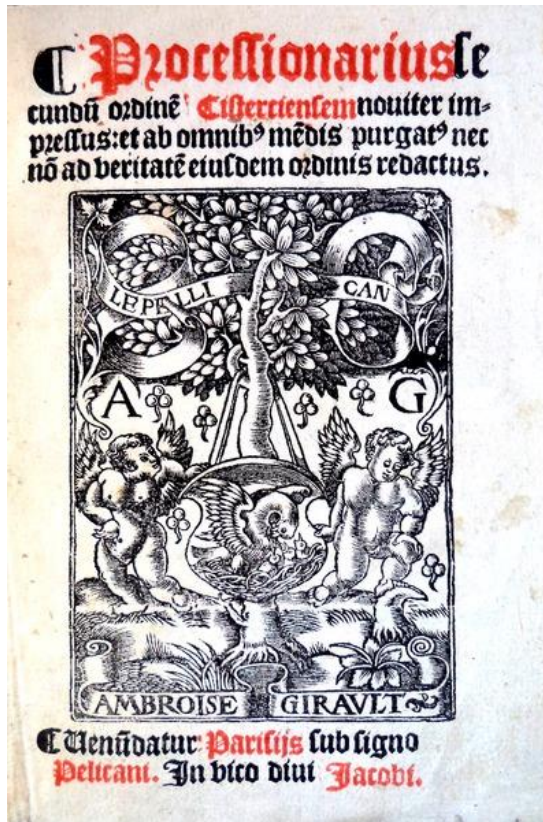 ¶ Processionarius se
cundū ordinē Cisterciensem nouiter im-
pressus: et ab omnibꝰ mēdis purgatꝰ nec
nō ad veritatē eiusdem ordinis redactus.
LE PELLI CAN
A G
AMBROISE GIRAVLT
¶ Uenūdatur Parisijs sub signo
Pelicani. In vico diui Jacobi.